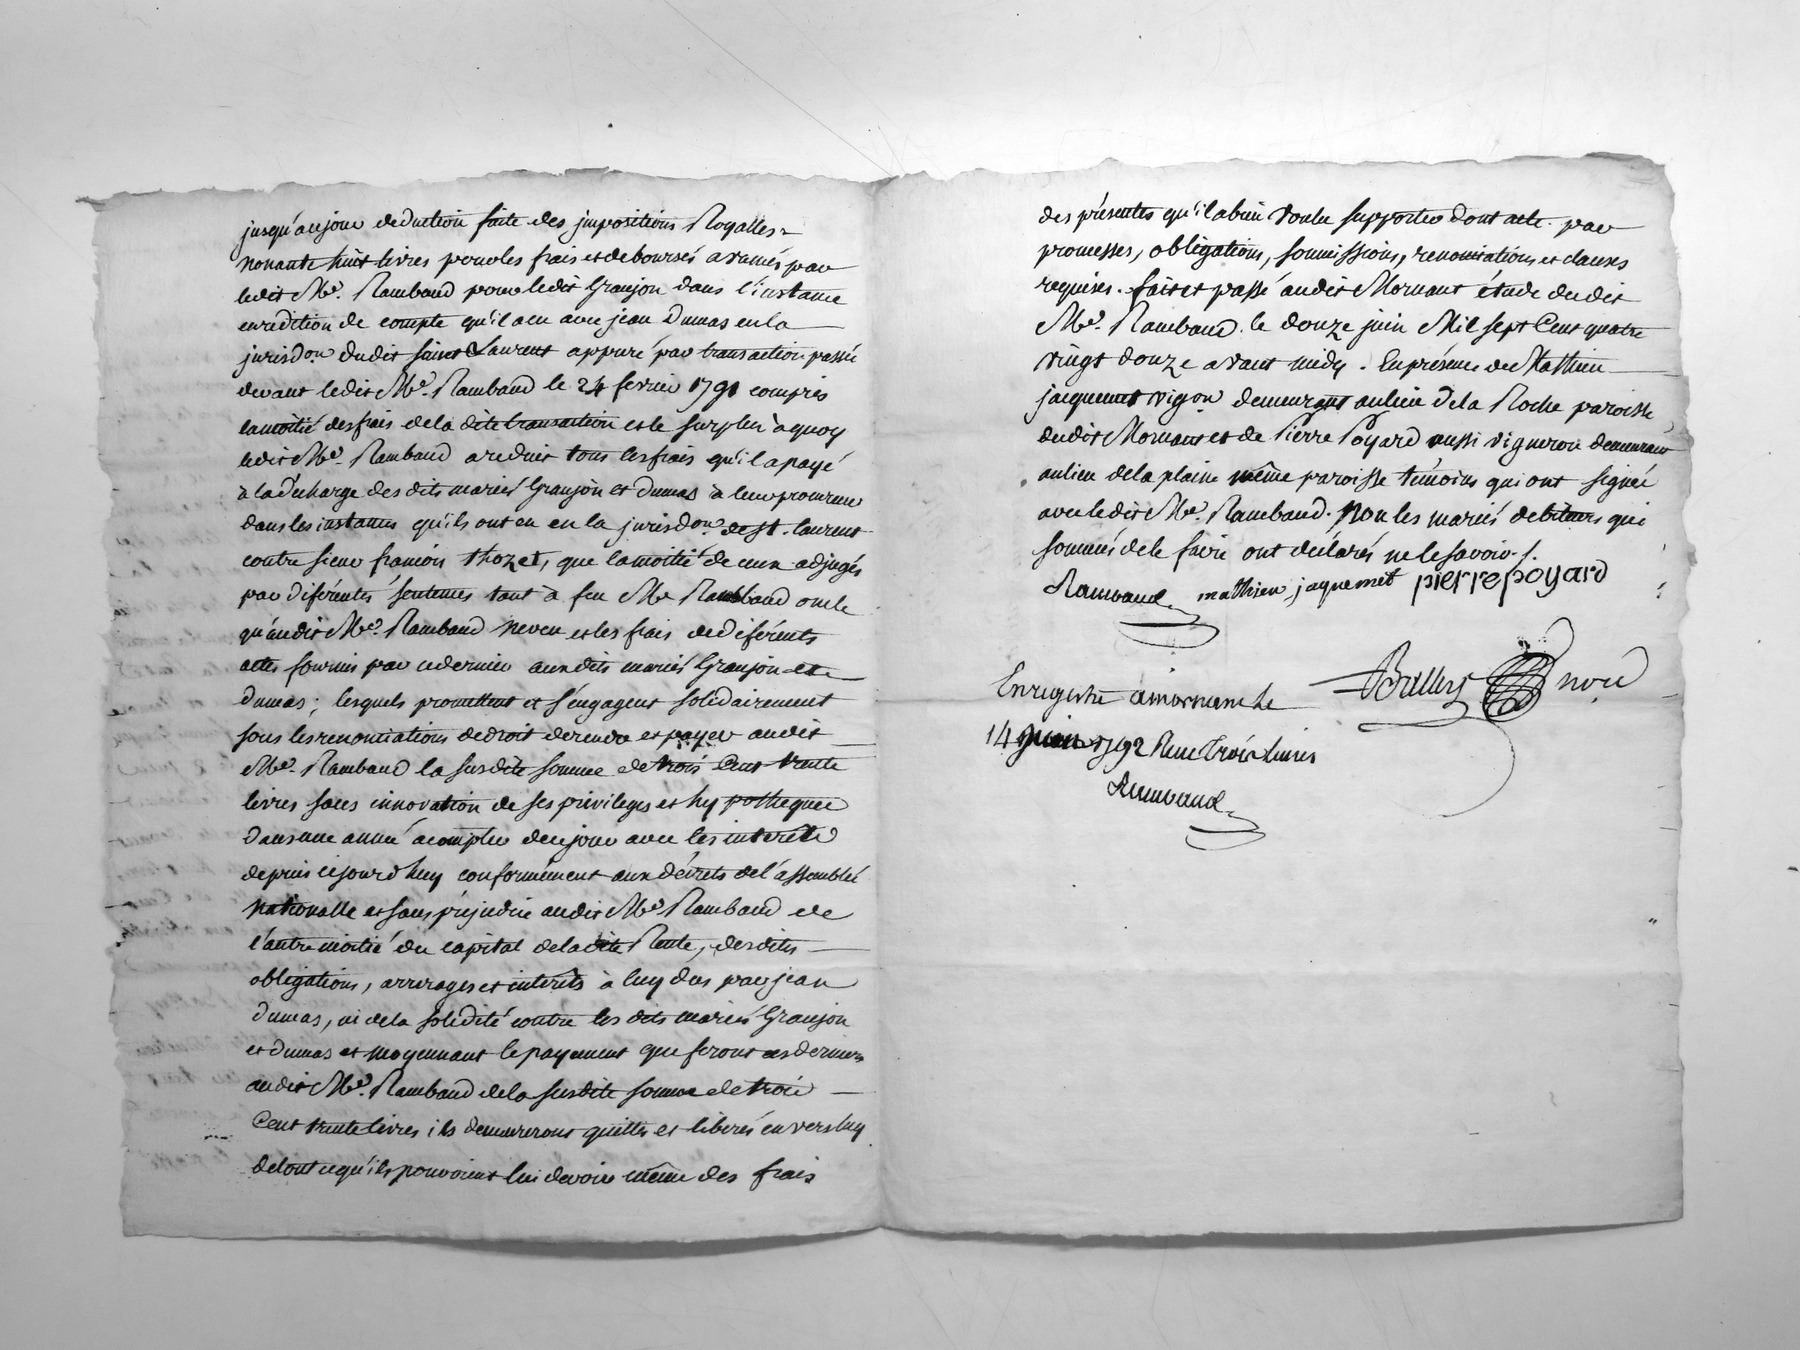 jusqu'aujour deduction faite des jmpositions Royalles
nonante huit livres pour les frais et deboursés avancés par
ledit Me. Rambaud pour ledit Granjon dans l'instance
en redition de compte qu'il a eu avec jean Dumas en la
jurisdon. dudit saint Laurent appuré par transaction passée
devant ledit Me. Rambaud le 24 fevrier 1791 compris
la moitié des frais de la dite transaction et le surplus à quoy
ledit Me. Rambaud a reduit tous les frais qu'il a payé
à la décharge des dits mariés Granjon et Dumas à leur procureur
dans les instances qu'ils ont eu en la jurisdon. de st. laurent
contre sieur françois thozet, que la moitié de ceux adjugés
par diférentes sentences tant à feu Me Rambaud oncle
qu'audit Me. Rambaud neveu et les frais de diférents
actes fournis par ce dernier aux dits mariés Granjon et
Dumas; lesquels promettent et s'engagent solidairement
sous les renonciations de droit de rendre et payer audit
Me. Rambaud la susdite somme de trois Cent trente
livres sans innovation de ses privileges et hypotheques
dans une année acomplie de ce jour avec les interêts
depuis cejourd'huy conformément aux décrets de l'assemblée
nationalle et sans préjudice audit Me Rambaud de
l'autre moitié du capital de la dite Rente, desdites
obligations, arrerages et interêts à luy dus par jean
Dumas, ni de la solidité contre les dits mariés Granjon
et Dumas et moyennant le payement que feront ces derniers
audit Me. Rambaud de la susdite somme de trois
Cent trente livres ils demeureront quittes et libérés envers luy
de tout ce qu'ils pouvoient lui devoir même des frais
des présentes qu'il a bien voulu supporter dont acte. par
promesses, obligations, soumissions, renonciations et clauses
requises. fait et passé audit Mornant étude dudit
Me. Rambaud. le douze juin Mil sept Cent quatre
vingt douze avant midy. En présence de Mathieu
jacquemet vigon demeurant au lieu de la Roche paroisse
dudit Mornant et de Pierre Poyard aussi vigneron demeurant
au lieu de la plaine même paroisse témoins qui ont signés
avec ledit Me. Rambaud. non les mariés debiteurs qui
sommés de le faire ont déclarés ne le savoir./.
Rambaud mathieu jaquemet pierre poyard
Enregistré a mornant le
14 juin 1792 Reçu trois livres
Rambaud
nore